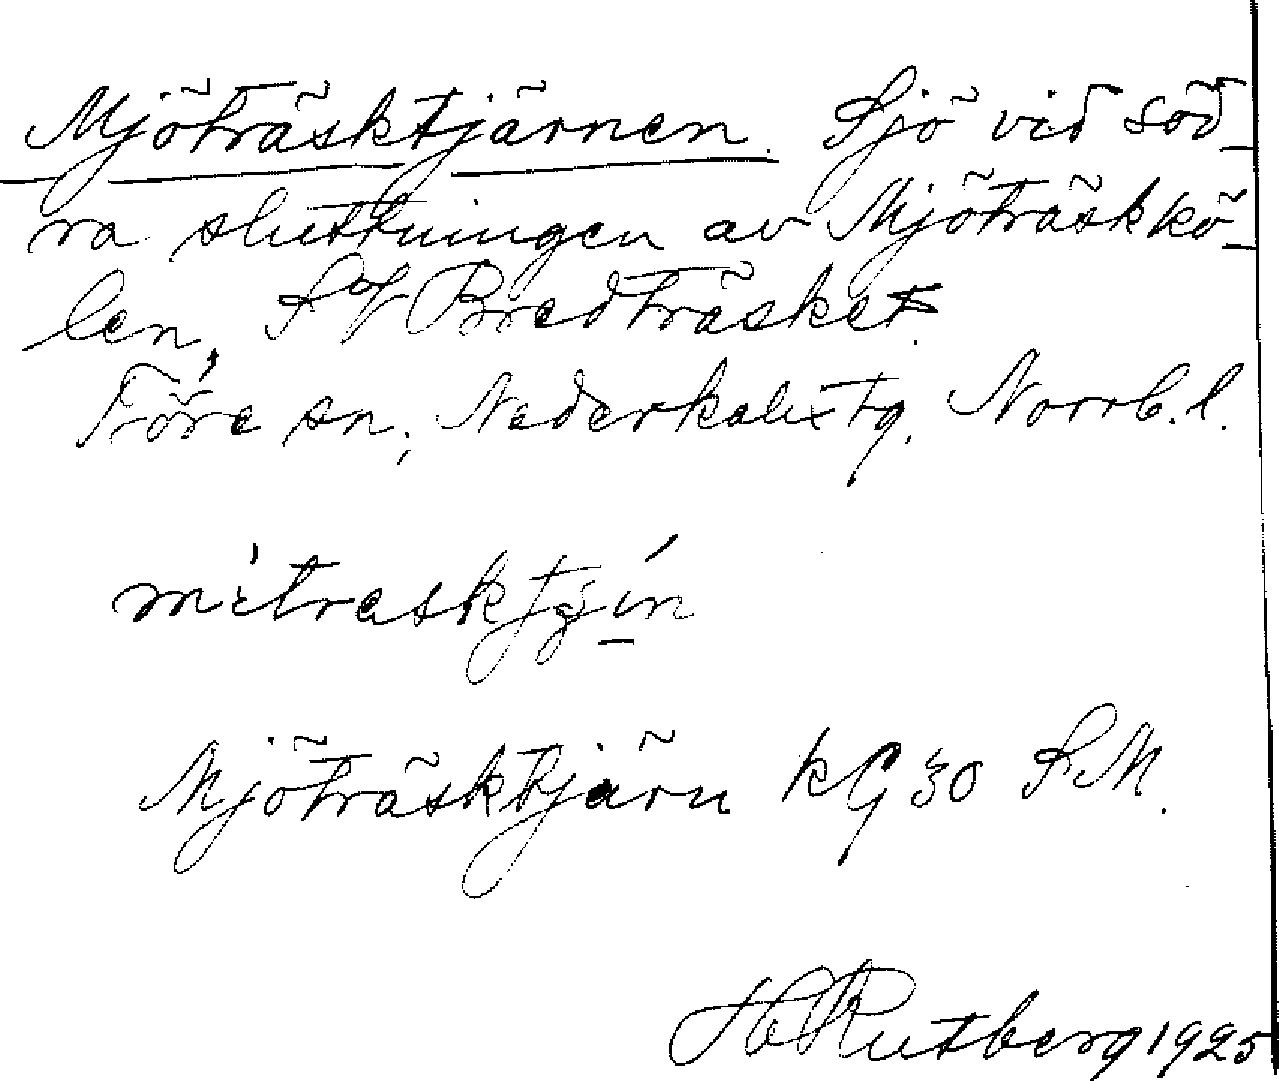 Mjöträsktjärnen. Sjö vid söd-
ra sluttningen av Mjöträskkö-
len, SV Bredträsket.
Töre sn, Nederkalix tg, Norrb. l.
Mjöträsktjärn kG 30 SM.
H Rutberg 1925